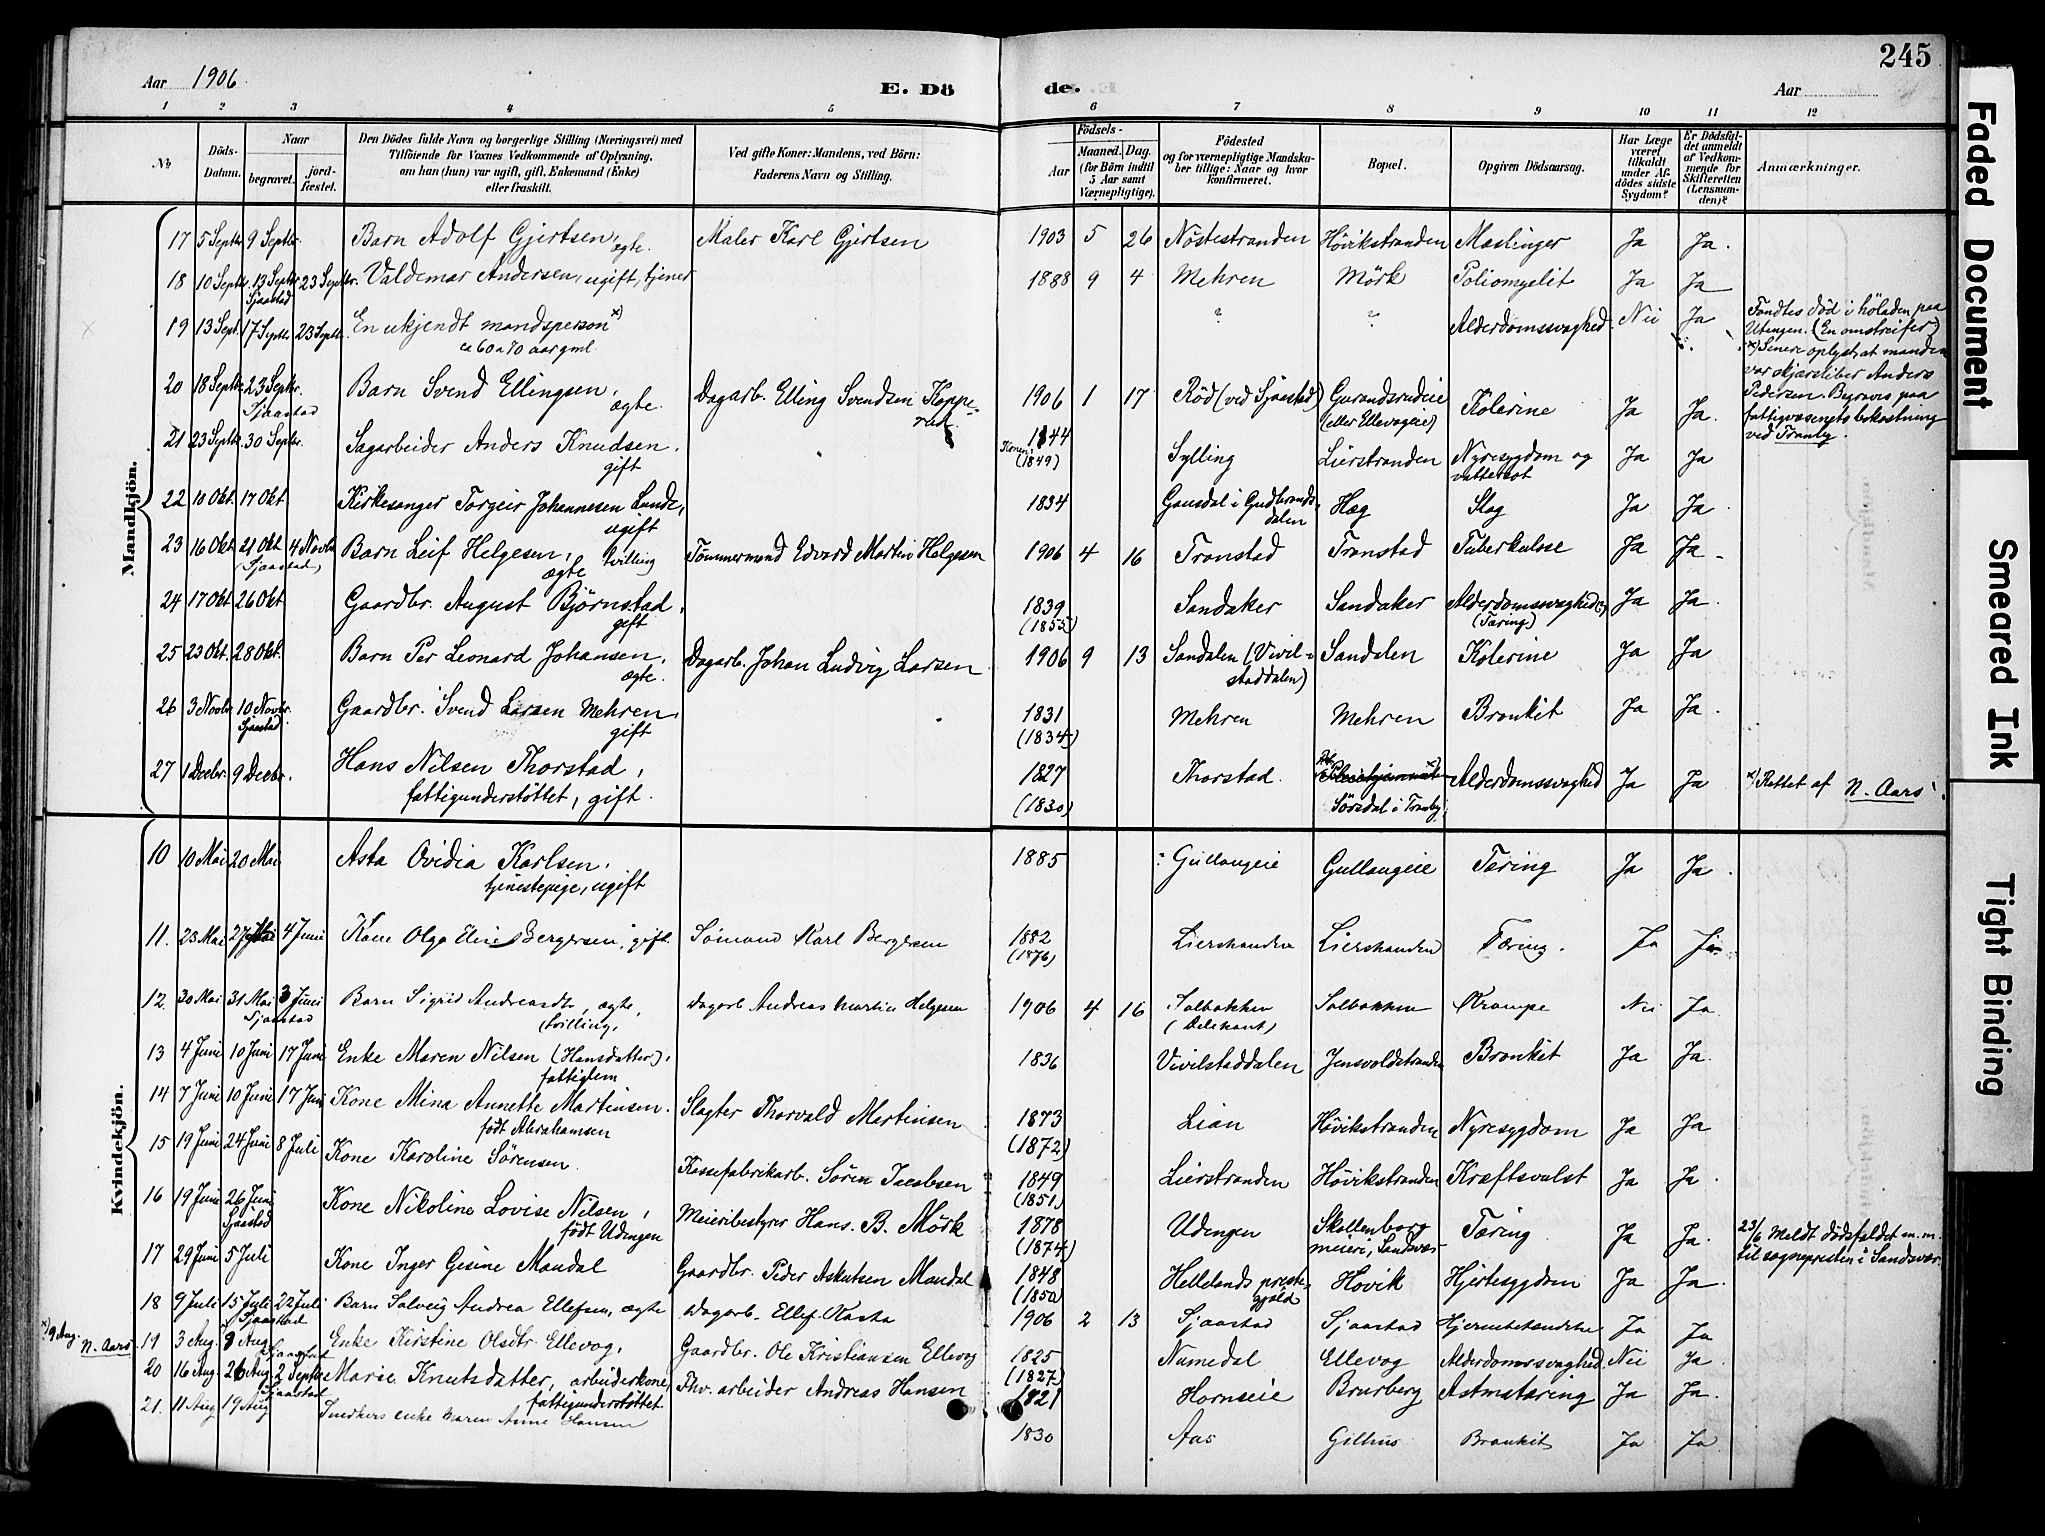 245
Aar 1906
E. Dö de.
Aar
1 2 3 4 5 6 7 8 9 10 11 12
No
Döds-Datum.
Naar begravet. jordfæstet.
Den Dödes fulde Navn og borgerlige Stilling (Næringsvei) med Tilföiende for Voxnes Vedkommende af Oplysning, om han (hun) var ugift, gift, Enkemand (Enke) eller fraskilt.
Ved gifte Koner: Mandens, ved Börn: Faderens Navn og Stilling.
Födsels- Aar Maaned. Dag. (for Börn indtil 5 Aar samt Værnepligtige).
Födested og for værnepligtige Mandskaber tillige: Naar og hvor konfirmeret.
Bopæl.
Opgiven Dödsaarsag.
Har Læge været tilkaldt under Afdödes sidste Sygdom?
Er Dödsfaldet anmeldt af Vedkommende for Skifteretten (Lensmanden)?
Anmærkninger.
Mandkjön.
17 5 Septbr. 9 Septbr. Barn Adolf Gjertsen, ægte. Maler Karl Gjertsen 1903 5 26 Nöstestranden Hövikstranden Meslinger Ja Ja.
18 10 Septbr. 13 Septbr. Sjaastad 23 Septbr. Valdemar Andersen, ugift, tjener 1888 9 4 Mehren Mörk Poliomyelit Ja Ja
19 13 Sept. 17 Septbr. 23 Septbr. En ukjendt mandsperson x) ca 60 a 70 aar gml. ? ? Alderdomssvaghed Nei Ja
Fandtes död i höladen paa
Utengen. (En omstreifer)
x) Senere oplyst, at manden
var skjærsliber Anders
Pedersen. Begraves paa
fattigvæsenets bekostning
ved Tranby.
20 18 Septbr. 23 Septbr. Sjaastad Barn Svend Ellingsen, ægte. Dagarb. Elling Svendsen Kopperud 1906 1 17 Röd (ved Sjaastad) (eller Ellevogeie) Kolerine Ja Ja.
21 23 Septbr. 30 Septbr. Sagarbeider Anders Knudsen, gift 1844 Konen: (1849) Sylling Lierstranden Nyresygdom og vattersot Ja Ja
22 10 Okt. 17 Okt. Kirkesanger Torgeir Johannesen Lunde, ugift 1834 Gausdal i Gudbrandsdalen Hæg Slag Ja Ja.
23 16 Okt. 21 Okt. (Sjaastad) 4 Novbr. Barn Leif Helgesen, ægte tvilling Tömmermand Edvard Martin Helgesen 1906 4 16 Tronstad Tronstad Tuberkulose Ja Ja.
24 17 Okt. 26 Okt. Gaardbr. August Björnstad, gift 1839 (1855) Sandaker Sandaker Alderdomssvaghed (Tæring) Ja Ja.
25 23 Okt. 28 Okt. Barn Per Leonard Johansen, ægte. Dagarb. Johan Ludvig Larsen 1906 9 13 Sandalen (Vivilstaddalen) Sandalen Kolerine Ja Ja
26 3 Novbr. 10 Novbr. Sjaastad Gaardbr. Svend Larsen Mehren, gift 1831 (1834) Mehren Mehren Bronkit Ja Ja.
27 1 Decbr. 9 Decbr. Hans Nilsen Thorstad, fattigunderstöttet, gift. 1827 (1830) Thorstad. Sörsdal i Tranby. Alderdomssvaghed Ja Ja x) Rettet af N. Aars.
Kvindekjön.
10 10 Mai 20 Mai Asta Ovidia Karlsen, tjenestepige, ugift 1885 Gullaugeie Gullaugeie Tæring Ja Ja.
11. 23 Mai 27 Mai 4 Juni Kone Olga Eline Bergersen, gift. Sömand Karl Bergersen 1882 (1876) Lierstranden Lierstranden Tæring. Ja Ja.
12. 30 Mai 31 Mai Sjaastad 3 Juni Barn Sigrid Andreasdtr, ægte, tvilling, Dagarb Andreas Martin Helgesen 1906 4 16 Solbakken Solbakken Krampe Nei Ja.
13 4 Juni 10 Juni 17 Juni Enke Maren Nilsen (Hansdatter), fattiglem 1836 Vivilstaddalen Jensvoldstranden Bronkit Ja Ja.
14 7 Juni 10 Juni 17 Juni Kone Mina Annette Martinsen. födt Abrahamsen Slagter Thorvald Martinsen 1873 (1872) Lian Hövikstranden Nyresygdom Ja Ja
15 19 Juni 24 Juni 8 Juli Kone Karoline Sörensen. Kassefabrikarb. Sören Jacobsen 1849 (1851) Lierstranden Hövikstranden Kræftsvulst Ja Ja.
16 19 Juni 26 Juni Sjaastad Kone Nikoline Lovise Nilsen, födt Udengen Meieribestyrer Hans. B. Mörk 1878 (1874) Udengen Skollenborg meieri, Sandsvær Tæring Ja Ja. 23/6 Meldt dödsfaldet m.m. til sognepresten i Sandsvær.
17 29 Juni 5 Juli Kone Inger Gesine Mandal Gaardbr. Peder Askutsen Mandal 1848 (1850) Hellelands prestegjeld Hövik Hjertesygdom Ja Ja.
18 9 Juli 15 Juli Sjaastad 22 Juli Barn Solveig Andrea Ellefsen, ægte Dagarb. Ellef Kasta 1906 2 13 Sjaastad Sjaastad Hjernebetændelse Ja Ja
x) 9 Aug. N. Aars
19 3 Aug. 8 Aug. Sjaastad Enke Kirstine Olsdtr. Ellevog, Gaardbr. Ole Kristiansen Ellevog 1825 (1827) Numedal Ellevog Alderdomssvaghed Nei Ja.
20 16 Aug. 26 Aug. Sjaastad 2 Septbr. Marie Knutsdatter, arbeiderkone, fattigunderstöttet Fhv. arbeider Andreas Hansen 1821 Hornseie Brurberg Astmatæring Ja Ja.
21. 11 Aug 19 Aug Snedkers enke Karen Anne Hansen 1830 Aas Gilhus Bronkit Ja Ja
Faded Document
Smeared Ink
Tight Binding